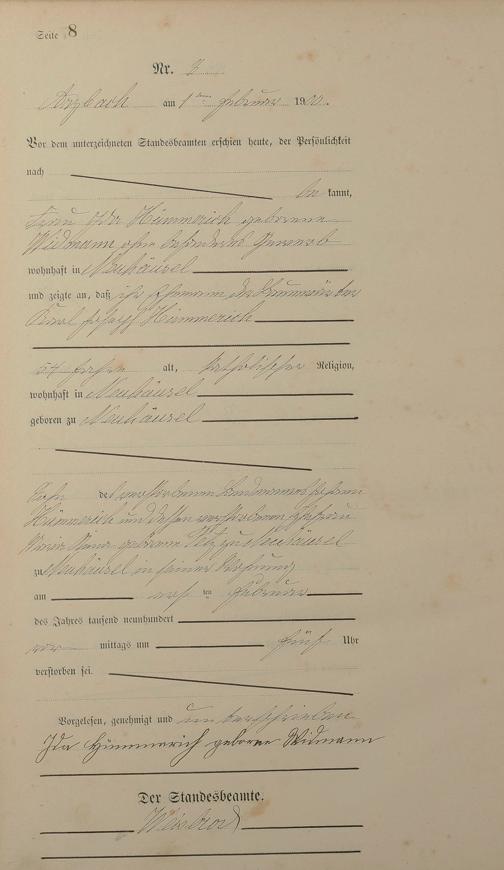 Seite 8
Nr.
Arzbach am 1ten Februar 190
Vor dem unterzeichneten Standesbeamten erschien heute, der Persönlichkeit
nach
be kannt,
Frau Ida Hümmerich geborene
Widmann ohne besonderes Gewerb
wohnhaft in Neuhäusel
und zeigte an, daß ihr Ehemann der
Karl Joseph Hümmerich
54 Jahre alt, katholischer Religion,
wohnhaft in Neuhäusel
geboren zu Neuhäusel
Sohn des verstorbenen Johann
Hümmerich und dessen verstorbenen Ehefrau
Maria Anna geborene zu Neuhäusel
zu Neuhäusel in seiner Wohnung
am ersten Februar
des Jahres tausend neunhundert
vor mittags um fünf Uhr
verstorben sei.
Vorgelesen, genehmigt und unterschrieben
Ida Hümmerich geborene Widmann
Der Standesbeamte.
Weisbrod